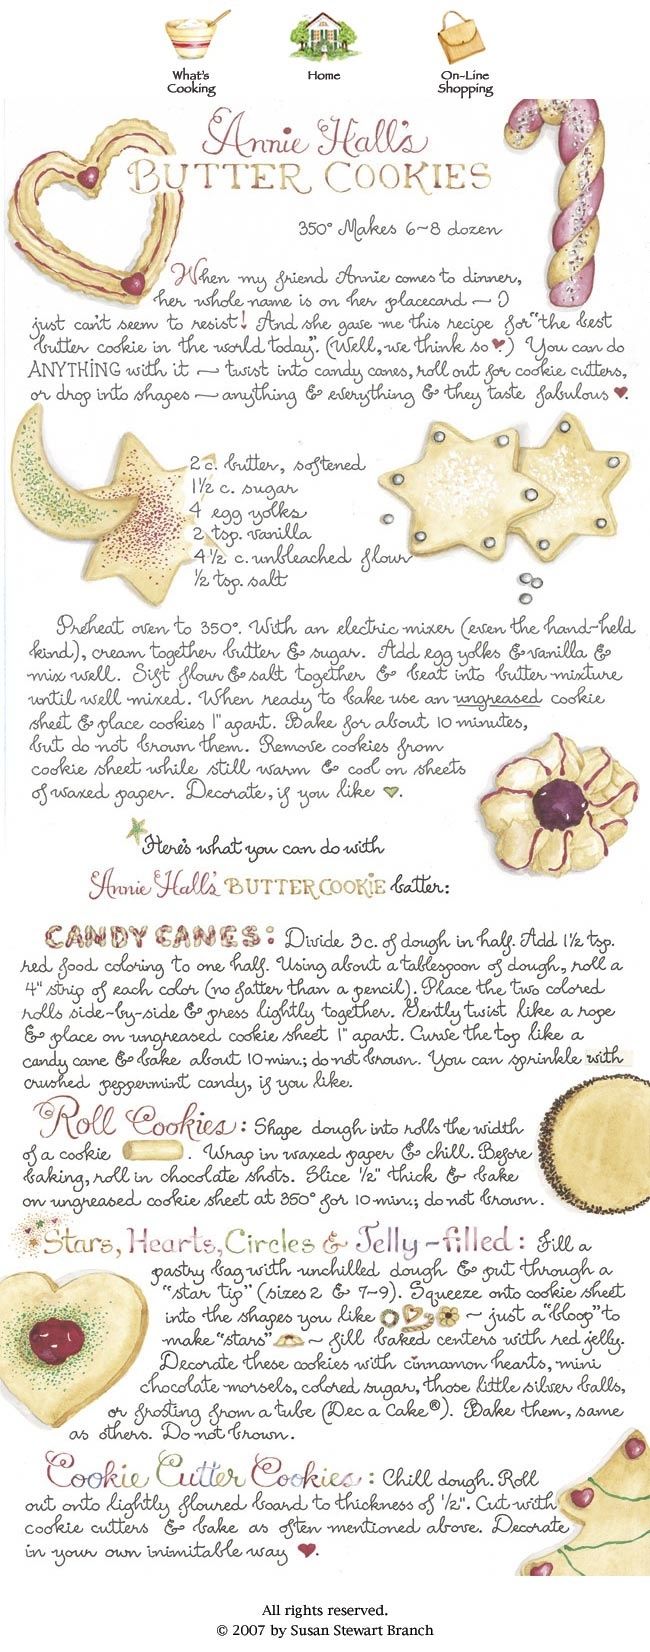 What's
Cooking
Home
On-Line
Shopping
Annie Hall's
BUTTER COOKIES
350° Makes 6~8 dozen
When my friend Annie comes to dinner,
her whole name is on her placecard — I
just can't seem to resist! And she gave me this recipe for "the best
butter cookie in the world today". (Well, we think so ♥.) You can do
ANYTHING with it — twist into candy canes, roll out for cookie cutters,
or drop into shapes — anything & everything & they taste fabulous ♥.
2 c. butter, softened
1½ c. sugar
4 egg yolks
2 tsp. vanilla
4½ c. unbleached flour
½ tsp. salt
Preheat oven to 350°. With an electric mixer (even the hand-held
kind), cream together butter & sugar. Add egg yolks & vanilla &
mix well. Sift flour & salt together & beat into butter mixture
until well mixed. When ready to bake use an ungreased cookie
sheet & place cookies 1" apart. Bake for about 10 minutes,
but do not brown them. Remove cookies from
cookie sheet while still warm & cool on sheets
of waxed paper. Decorate, if you like ♥.
Here's what you can do with
Annie Hall's BUTTER COOKIE batter:
CANDY CANES: Divide 3 c. of dough in half. Add 1½ tsp.
red food coloring to one half. Using about a tablespoon of dough, roll a
4" strip of each color (no fatter than a pencil). Place the two colored
rolls side-by-side & press lightly together. Gently twist like a rope
& place on ungreased cookie sheet 1" apart. Curve the top like a
candy cane & bake about 10 min.; do not brown. You can sprinkle with
crushed peppermint candy, if you like.
Roll Cookies: Shape dough into rolls the width
of a cookie . Wrap in waxed paper & chill. Before
baking, roll in chocolate shots. Slice ½" thick & bake
on ungreased cookie sheet at 350° for 10 min.; do not brown.
Stars, Hearts, Circles & Jelly-filled: Fill a
pastry bag with unchilled dough & put through a
"star tip" (sizes 2 & 7~9). Squeeze onto cookie sheet
into the shapes you like ~ just a "bloop" to
make "stars" ~ fill baked centers with red jelly.
Decorate these cookies with cinnamon hearts, mini
chocolate morsels, colored sugar, those little silver balls,
or frosting from a tube (Dec a Cake®). Bake them, same
as others. Do not brown.
Cookie Cutter Cookies: Chill dough. Roll
out onto lightly floured board to thickness of ½". Cut with
cookie cutters & bake as often mentioned above. Decorate
in your own inimitable way ♥.
All rights reserved.
© 2007 by Susan Stewart Branch